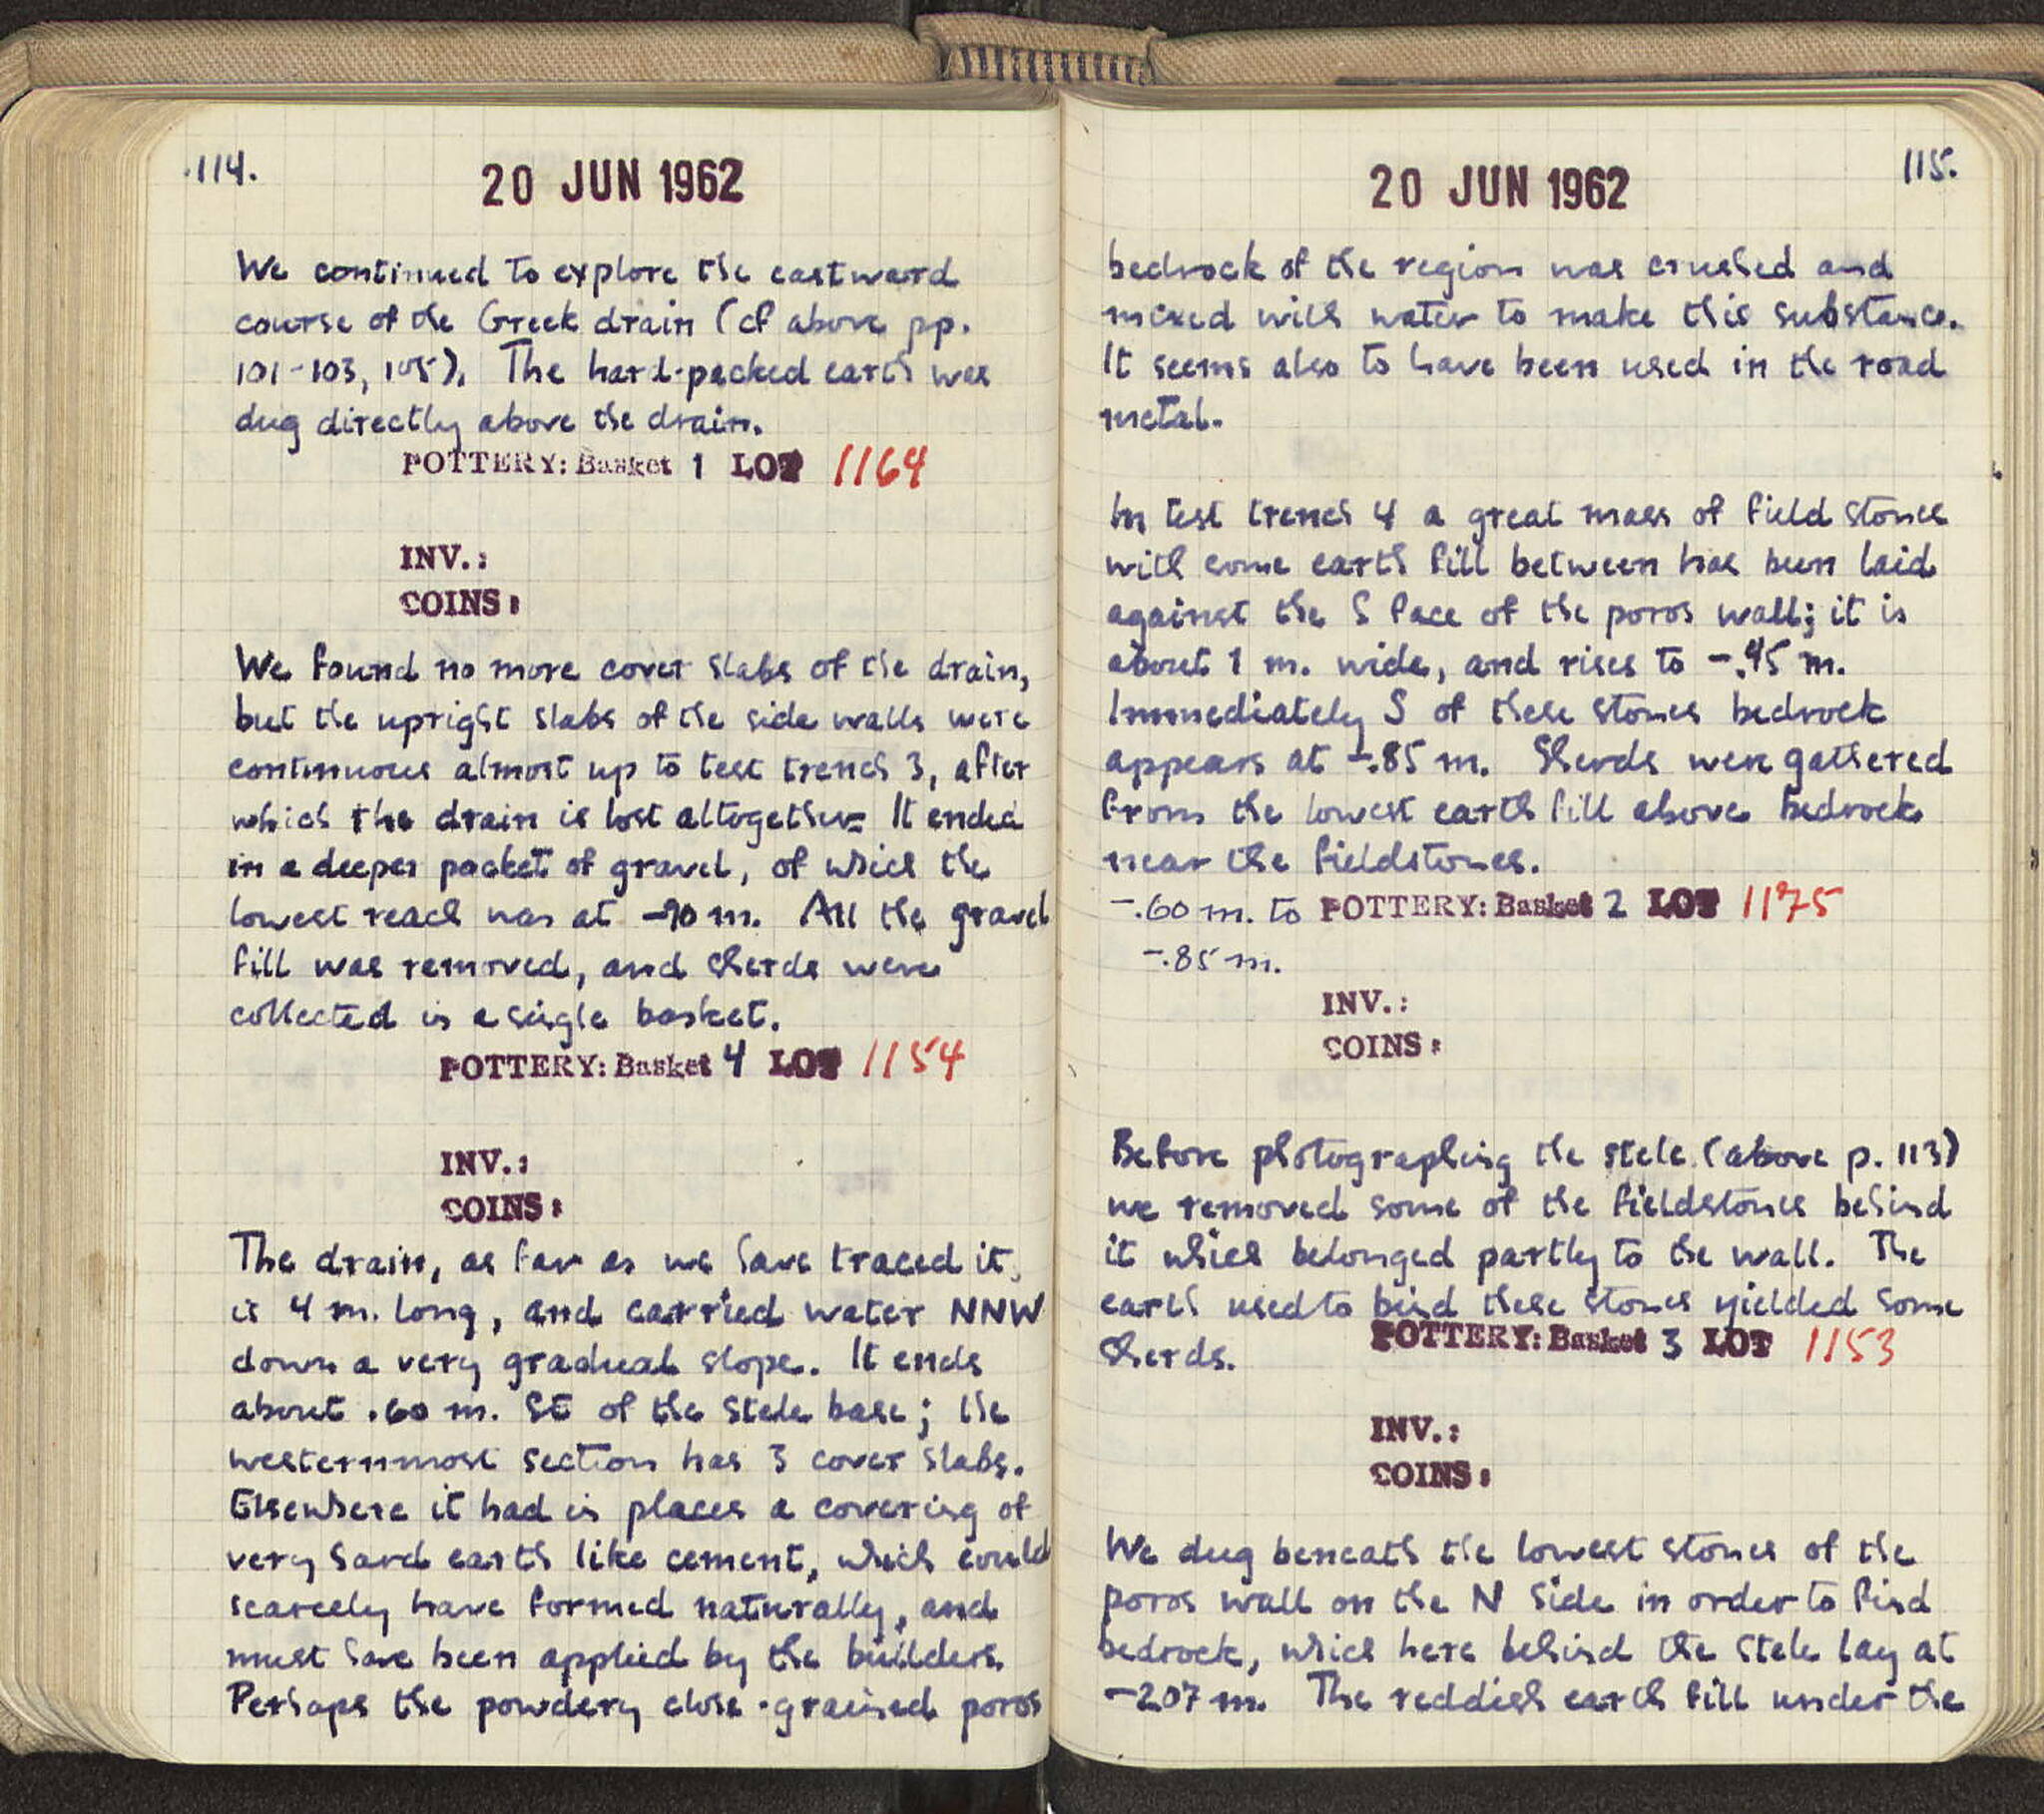 114.
20 JUN 1962
We continued to explore the eastward
course of the Greek drain (cf above pp.
101-103, 105). The hard-packed earth was
dug directly above the drain.
POTTERY: Basket 1 LOT 1164
INV.:
COINS:
We found no more cover slabs of the drain,
but the upright slabs of the side walls were
continuous almost up to test trench 3, after
which the drain is lost altogether. It ended
in a deeper pocket of gravel, of which the
lowest reach was at -.90 m. All the gravel
fill was removed, and sherds were
collected in a single basket.
POTTERY: Basket 4 LOT 1154
INV.:
COINS:
The drain, as far as we have traced it,
is 4 m. long, and carried water NNW
down a very gradual slope. It ends
about .60 m. SE of the stele base; the
westernmost section has 3 cover slabs.
Elsewhere it had in places a covering of
very hard earth like cement, which could
scarcely have formed naturally, and
must have been applied by the builders.
Perhaps the powdery close-grained poros
115.
20 JUN 1962
bedrock of the region was crushed and
mixed with water to make this substance.
It seems also to have been used in the road
metal.
In test trench 4 a great mass of field stones
with some earth fill between has been laid
against the S face of the poros wall; it is
about 1 m. wide, and rises to -.45 m.
Immediately S of these stones bedrock
appears at -.85 m. Sherds were gathered
from the lowest earth fill above bedrock
near the fieldstones.
-.60 m. to POTTERY: Basket 2 LOT 1175
-.85 m.
INV.:
COINS:
Before photographing the stele (above p. 113)
we removed some of the fieldstones behind
it which belonged partly to the wall. The
earth used to bind these stones yielded some
sherds. POTTERY: Basket 3 LOT 1153
INV.:
COINS:
We dug beneath the lowest stones of the
poros wall on the N side in order to find
bedrock, which here behind the stele lay at
-2.07 m. The reddish earth fill under the